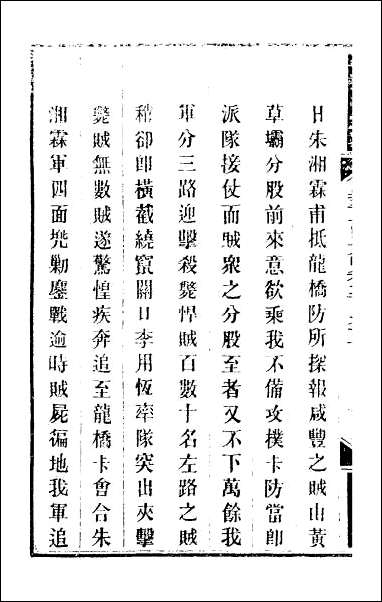 日朱湘霖甫抵龍橋防所探報咸豐之賊山黃
草壩分股前來意欲乘我不備攻撲卡防當卽
派隊接仗而賊衆之分股至者又不下萬餘我
軍分三路迎擊殺斃悍賊百數十名左路之賊
稍卻卽橫截繞竄關口李用恆率隊突出夾擊
斃賊無數賊遂驚惶疾奔追至龍橋卡會合朱
湘霖軍四面兠勦鏖戰逾時賊屍徧地我軍追